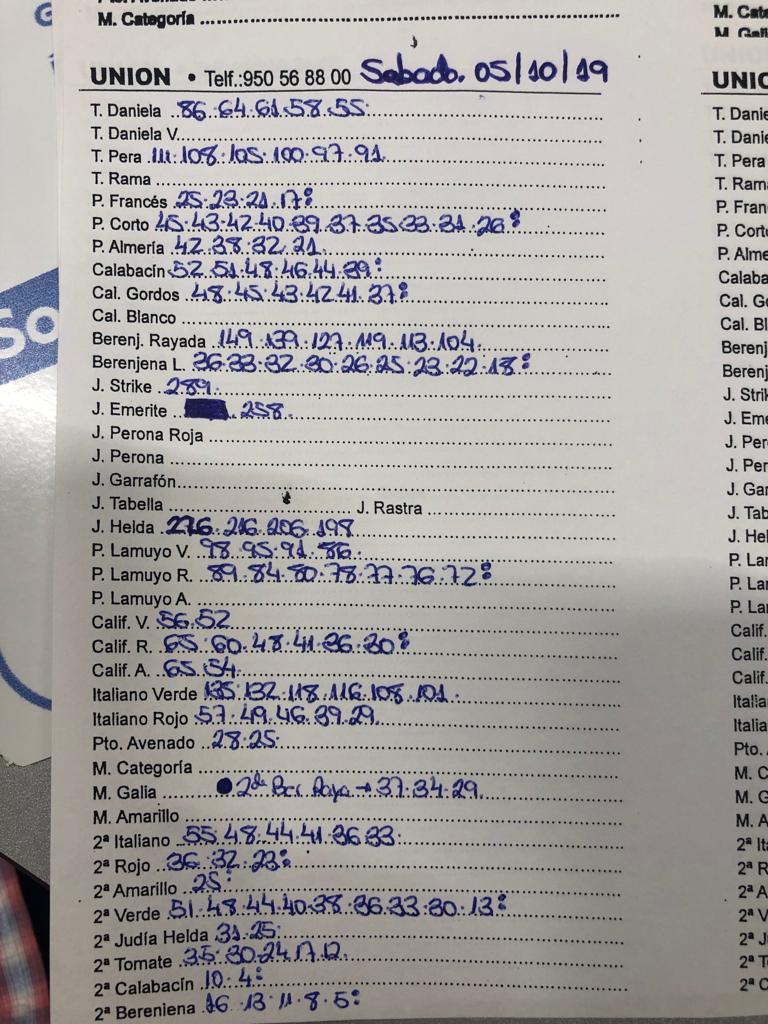 M. Categoría
UNION • Telf.:950 56 88 00 Sabado. 05/10/19
T. Daniela 86.64.61.58.55.
T. Daniela V.
T. Pera 111.108.105.100.97.91.
T. Rama
P. Francés 25.23.21.17:
P. Corto 45.43.42.40.39.37.35.33.31.26:
P. Almería 42.38.32.21.
Calabacín 52.51.48.46.44.39:
Cal. Gordos 48.45.43.42.41.37:
Cal. Blanco
Berenj. Rayada 149.139.127.119.113.104.
Berenjena L. 36.33.32.30.26.25.23.22.18:
J. Strike 289.
J. Emerite 258.
J. Perona Roja
J. Perona
J. Garrafón
J. Tabella J. Rastra
J. Helda 276.216.206.198
P. Lamuyo V. 98.95.91.86.
P. Lamuyo R. 89.84.80.78.77.76.72:
P. Lamuyo A.
Calif. V. 56.52
Calif. R. 65.60.48.41.36.30:
Calif. A. 65.54.
Italiano Verde 135.132.118.116.108.101.
Italiano Rojo 57.49.46.39.29.
Pto. Avenado 28.25.
M. Categoría
M. Galia 2ª Ber Raya → 37.34.29.
M. Amarillo
2ª Italiano 55.48.44.41.36.33.
2ª Rojo 36.32.23:
2ª Amarillo 25:
2ª Verde 51.48.44.40.38.36.33.30.13:
2ª Judía Helda 31.25.
2ª Tomate 35.30.24.17.12.
2ª Calabacín 10.4:
2ª Berenjena 16.13.11.8.5: